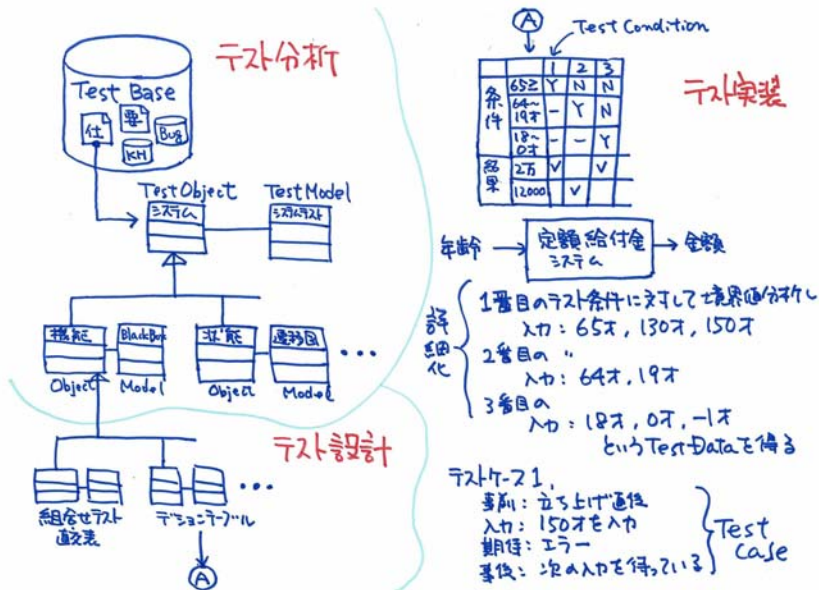 テスト分析
Test Base
仕
要
Bug
KH
TestObject
TestModel
システム
システムテスト
機能
BlackBox
状態
遷移図
...
Object
Model
Object
Model
テスト設計
...
組合せテスト
直交表
デシジョンテーブル
A
A
Test Condition
テスト実装
1 2 3
条件
65≧ Y N N
64〜19才 - Y N
18〜0才 - - Y
結果
2万 ✓ ✓
12000 ✓
年齢
定額給付金
システム
金額
詳細化
1番目のテスト条件に対して境界値分析し
入力: 65才, 130才, 150才
2番目の 〃
入力: 64才, 19才
3番目の
入力: 18才, 0才, -1才
というTestDataを得る
テストケース1,
事前: 立ち上げ直後
入力: 150才を入力
期待: エラー
事後: 次の入力を待っている
Test
Case